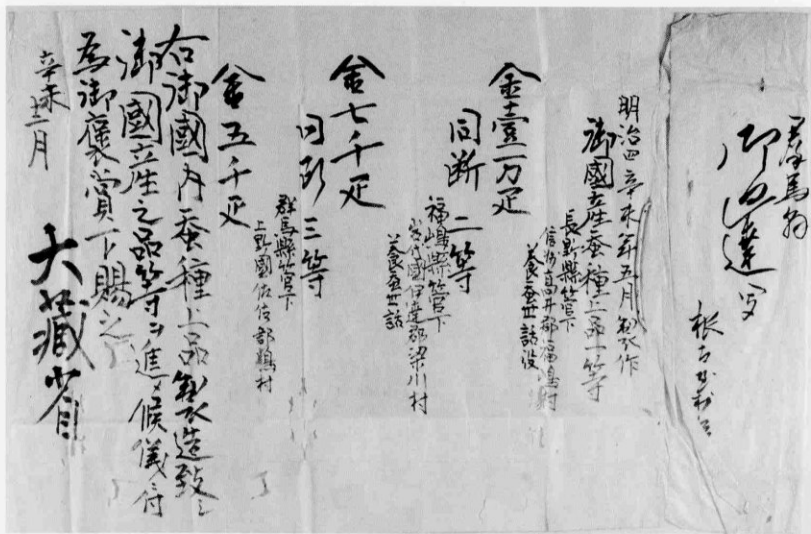 御達写
明治四辛未年五月製作
御國産蚕種上品一等
長野縣管下
信州高井郡福嶋村
養蚕世話役
金壹万疋
同断 二等
福嶋縣管下
伊達郡梁川村
養蚕世話
金七千疋
同断 三等
群馬縣管下
上野國佐位郡嶋村
金五千疋
右御國内蚕種上品製造致シ
御國産之品等ヲ進メ候儀ニ付
為御褒賞下賜之
辛未十二月
大藏省